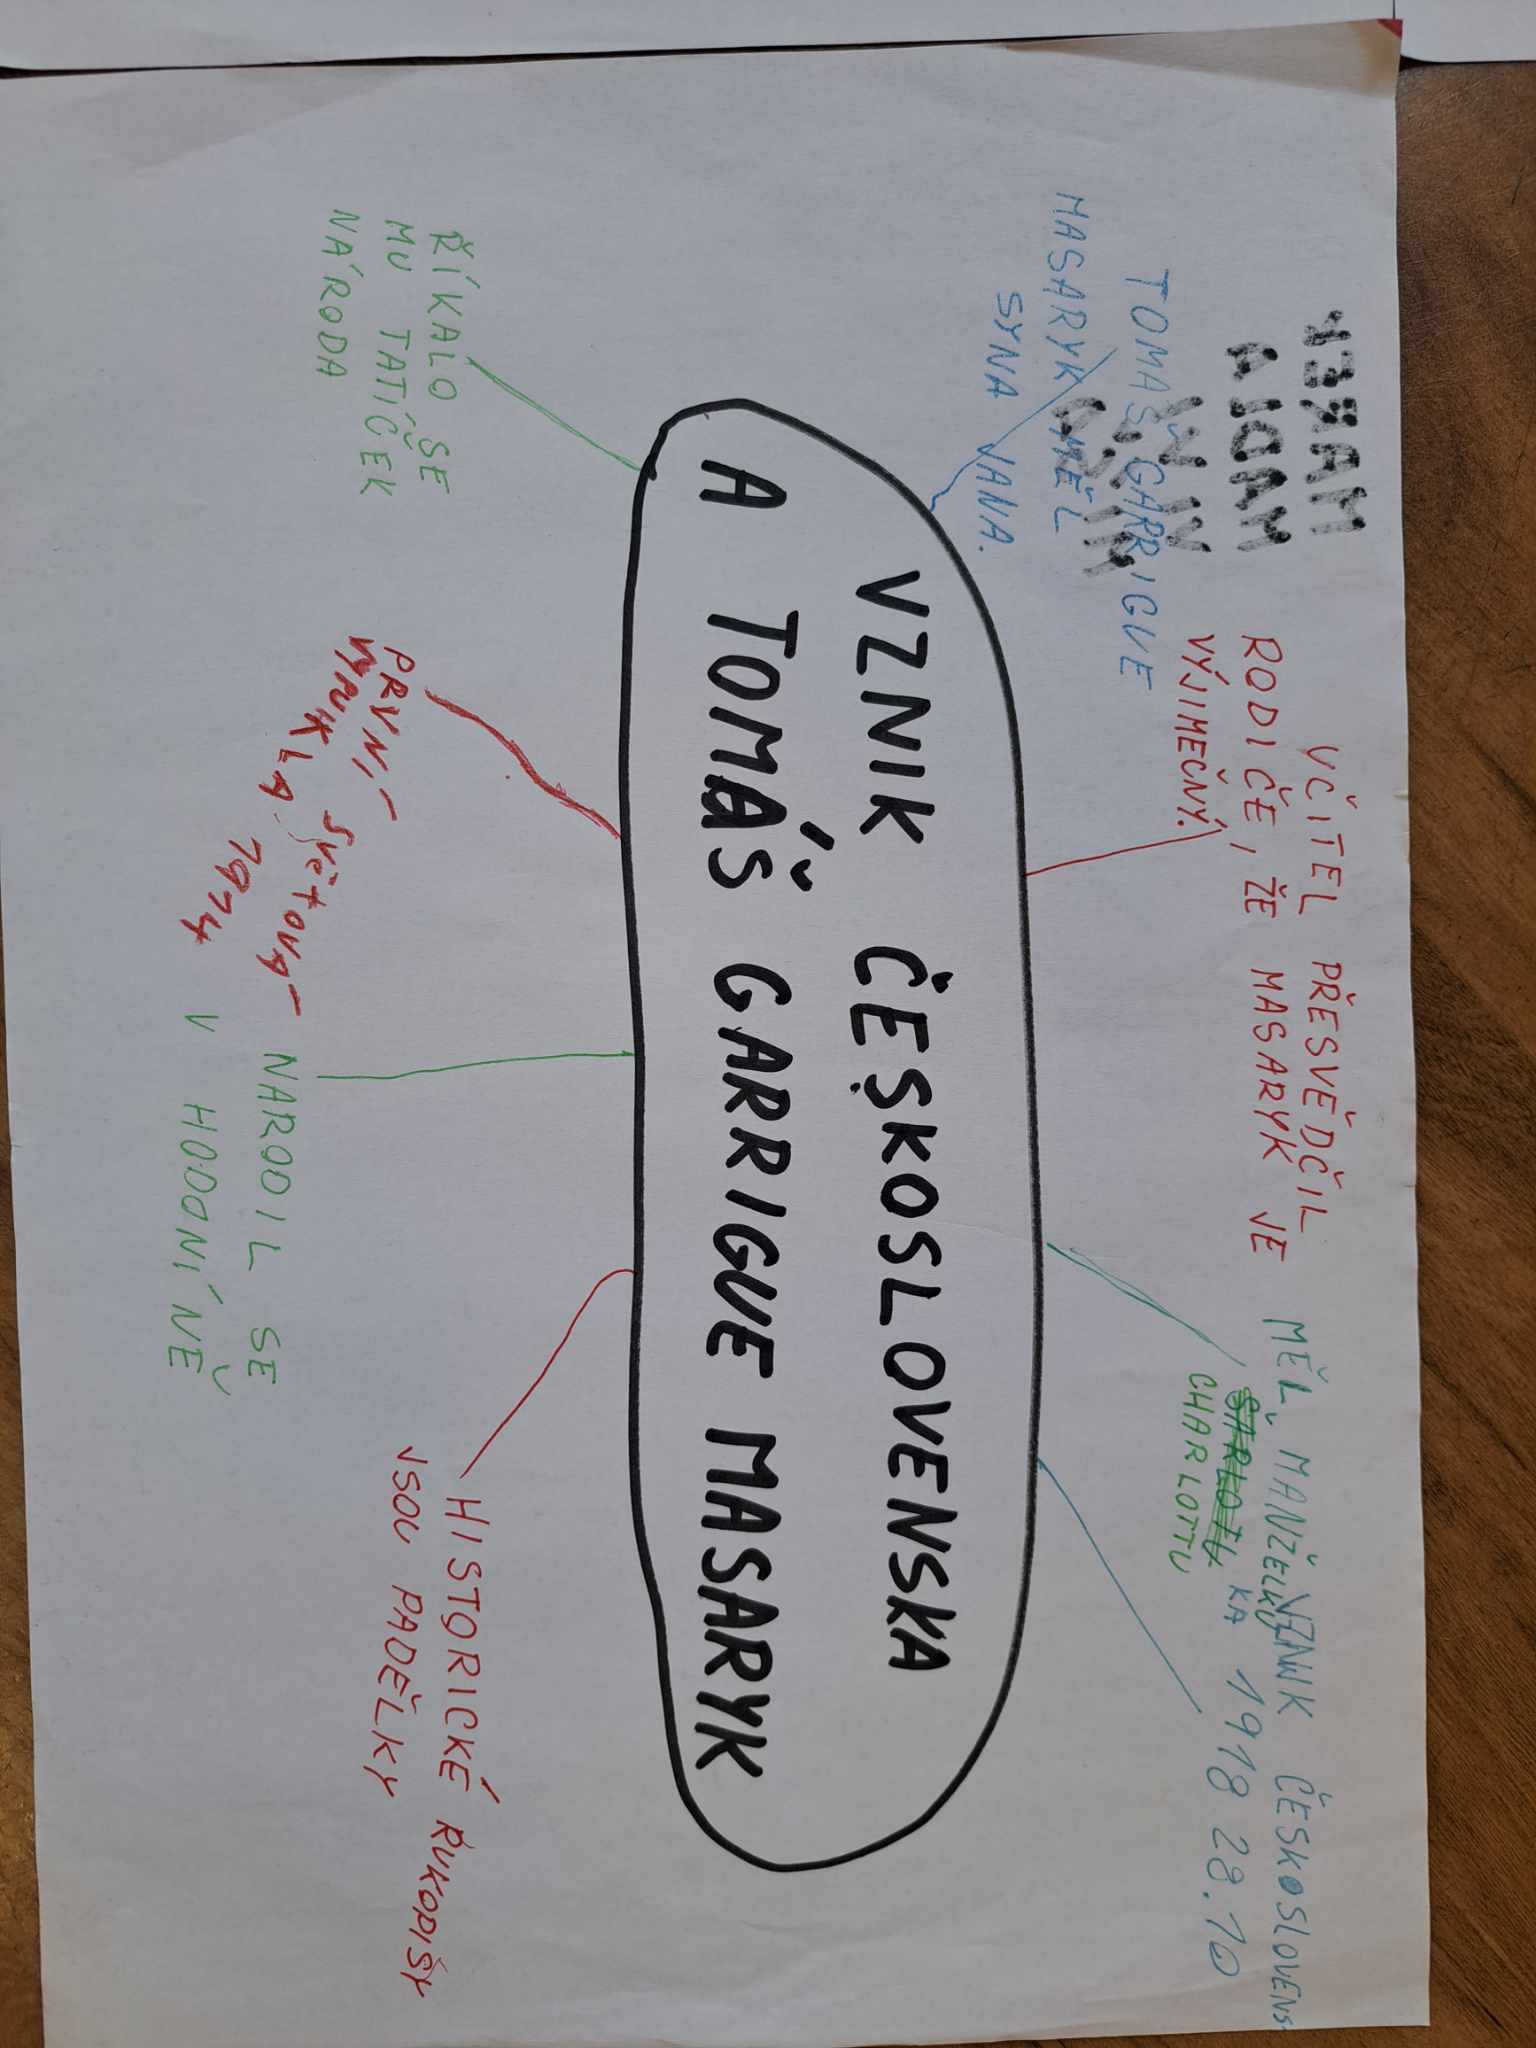 TOMAŠ GARRIGUE
MASARYK MĚL
SYNA JANA.
UČITEL PŘESVĚDČIL
RODIČE, ŽE MASARYK JE
VÝJIMEČNÝ.
MĚL MANŽELKU
CHARLOTTU
VZNIK ČESKOSLOVENS
KA 1918 28.10
VZNIK ČESKOSLOVENSKA
A TOMÁŠ GARRIGUE MASARYK
ŘÍKALO SE
MU TATÍČEK
NÁRODA
PRVNÍ světová
VYNKLA
1914
NARODIL SE
V HODONÍNĚ
HISTORICKÉ RUKOPISY
JSOU PADĚLKY